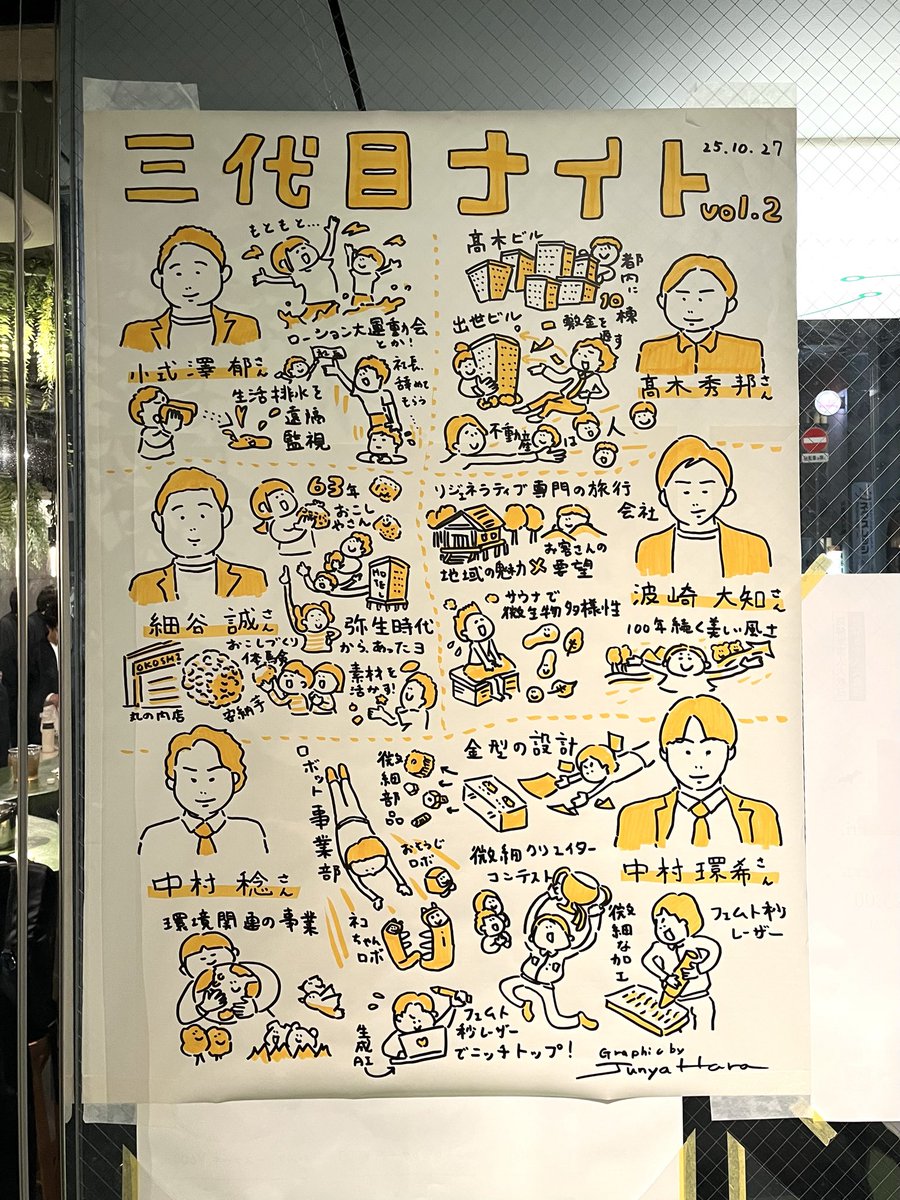 三代目ナイト vol.2
25.10.27
もともと…
ローション大運動会
とか!
小式澤 郁さん
生活排水を
遠隔
監視
社長、
辞めて
もらう
髙木ビル
都内に
10棟
出世ビル
敷金を
返す
髙木秀邦さん
不動産は人
細谷 誠さん
63年
おこし
やさん
HOTEL
弥生時代
からあったヨ
OKOSHI
丸の内店
おこしづくり
体験会
安納芋
素材を
活かす!
リジェネラティブ専門の旅行
会社
地域の魅力×お客さんの
要望
サウナで
微生物多様性
波崎 大知さん
100年続く美しい風土
中村 稔さん
環境関連の事業
ロボット事業部
微細部品
おそうじ
ロボ
ネコ
ちゃん
ロボ
生成
AI
フェムト
秒レーザー
でニッチトップ!
金型の設計
微細クリエイター
コンテスト
中村 環希さん
微細な加工
フェムト秒
レーザー
Graphic by
Junya Hara